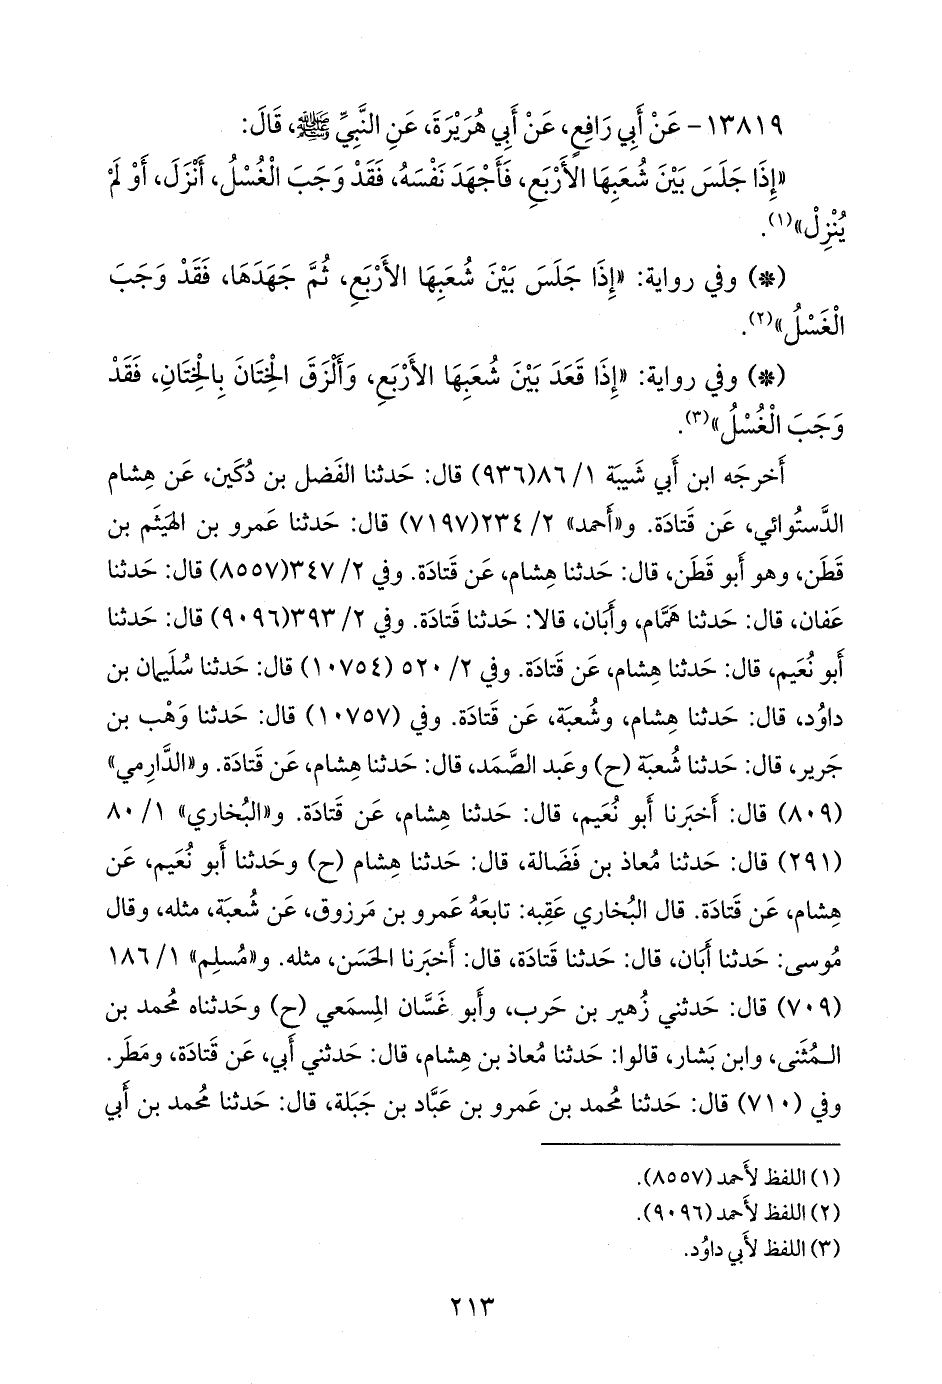 ١٣٨١٩- عَنْ أَبِي رَافِعٍ، عَنْ أَبِي هُرَيْرَةَ، عَنِ النَّبِيِّ ﷺ، قَالَ:
«إِذَا جَلَسَ بَيْنَ شُعَبِهَا الأَرْبَعِ، فَأَجْهَدَ نَفْسَهُ، فَقَدْ وَجَبَ الْغُسْلُ، أَنْزَلَ، أَوْ لَمْ
يُنْزِلْ»(١).
(*) وفي رواية: «إِذَا جَلَسَ بَيْنَ شُعَبِهَا الأَرْبَعِ، ثُمَّ جَهَدَهَا، فَقَدْ وَجَبَ
الْغَسْلُ»(٢).
(*) وفي رواية: «إِذَا قَعَدَ بَيْنَ شُعَبِهَا الأَرْبَعِ، وَأَلْزَقَ الْخِتَانَ بِالْخِتَانِ، فَقَدْ
وَجَبَ الْغُسْلُ»(٣).
أَخرجَه ابن أَبي شَيبَة ١/ ٨٦(٩٣٦) قال: حَدثنا الفَضل بن دُكَين، عَن هِشام
الدَّستُوائي، عَن قَتادَة. و«أَحمد» ٢/ ٢٣٤(٧١٩٧) قال: حَدثنا عَمرو بن الهَيثَم بن
قَطَن، وهو أَبو قَطَن، قال: حَدثنا هِشام، عَن قَتادَة. وفي ٢/ ٣٤٧(٨٥٥٧) قال: حَدثنا
عَفان، قال: حَدثنا هَمَّام، وأَبَان، قالا: حَدثنا قَتادَة. وفي ٢/ ٣٩٣(٩٠٩٦) قال: حَدثنا
أَبو نُعَيم، قال: حَدثنا هِشام، عَن قَتادَة. وفي ٢/ ٥٢٠ (١٠٧٥٤) قال: حَدثنا سُلَيمان بن
داوُد، قال: حَدثنا هِشام، وشُعبَة، عَن قَتادَة. وفي (١٠٧٥٧) قال: حَدثنا وَهْب بن
جَرير، قال: حَدثنا شُعبَة (ح) وعَبد الصَّمَد، قال: حَدثنا هِشام، عَن قَتادَة. و«الدَّارِمي»
(٨٠٩) قال: أَخبَرنا أَبو نُعَيم، قال: حَدثنا هِشام، عَن قَتادَة. و«البُخاري» ١/ ٨٠
(٢٩١) قال: حَدثنا مُعاذ بن فَضَالة، قال: حَدثنا هِشام (ح) وحَدثنا أَبو نُعَيم، عَن
هِشام، عَن قَتادَة. قال البُخاري عَقِبه: تابَعَهُ عَمرو بن مَرزوق، عَن شُعبَة، مثله، وقال
مُوسى: حَدثنا أَبَان، قال: حَدثنا قَتادَة، قال: أَخبَرنا الحَسَن، مثله. و«مُسلِم» ١/ ١٨٦
(٧٠٩) قال: حَدثني زُهير بن حَرب، وأَبو غَسَّان المِسمَعي (ح) وحَدثناه مُحمد بن
الـمُثَنى، وابن بَشار، قالوا: حَدثنا مُعاذ بن هِشام، قال: حَدثني أَبي، عَن قَتادَة، ومَطَر.
وفي (٧١٠) قال: حَدثنا مُحمد بن عَمرو بن عَبَّاد بن جَبَلة، قال: حَدثنا مُحمد بن أَبي
(١) اللفظ لأَحمد (٨٥٥٧).
(٢) اللفظ لأَحمد (٩٠٩٦).
(٣) اللفظ لأَبي داوُد.
٢١٣